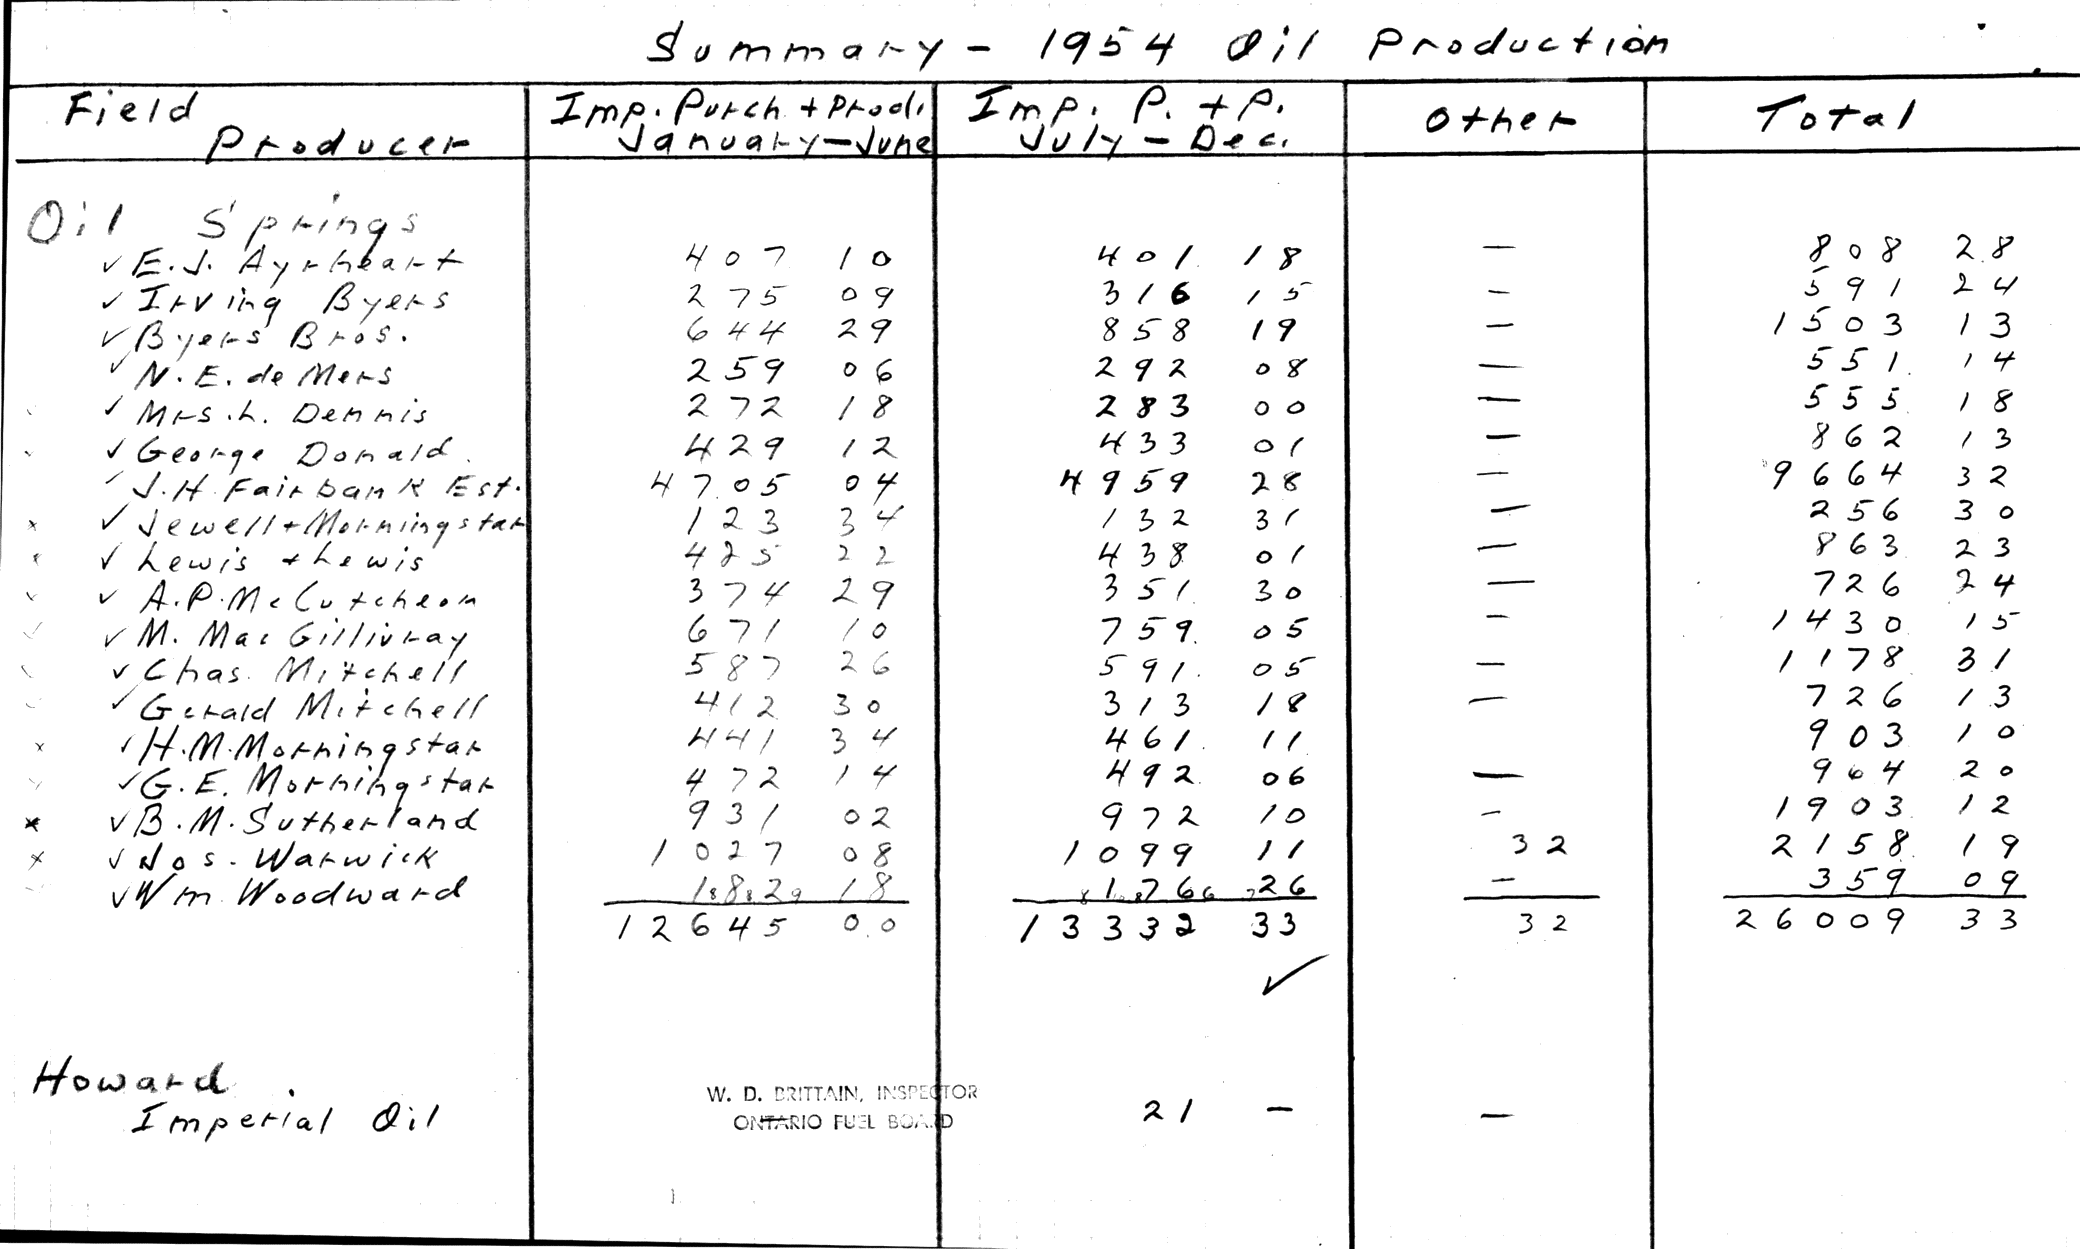 Summary - 1954 Oil Production
Field Producer Imp. Purch + Prod. January-June Imp. P. + P. July - Dec. Other Total
Oil Springs
✓ E.J. Ayrheart 407 10 401 18 — 808 28
✓ Irving Byers 275 09 316 15 — 591 24
✓ Byers Bros. 644 29 858 19 — 1503 13
✓ N.E. de Mers 259 06 292 08 — 551 14
✓ Mrs. L. Dennis 272 18 283 00 — 555 18
✓ George Donald 429 12 433 01 — 862 13
✓ J.H. Fairbank Est. 4705 04 4959 28 — 9664 32
x ✓ Jewell + Morningstar 123 34 132 31 — 256 30
x ✓ Lewis + Lewis 425 22 438 01 — 863 23
✓ A.P. McCutcheon 374 29 351 30 — 726 24
✓ ✓ M. MacGillivray 671 10 759 05 — 1430 15
✓ Chas. Mitchell 587 26 591 05 — 1178 31
✓ Gerald Mitchell 412 30 313 18 — 726 13
x ✓ H.M. Morningstar 441 34 461 11 903 10
✓ G.E. Morningstar 472 14 492 06 — 964 20
x ✓ B.M. Sutherland 931 02 972 10 — 1903 12
x ✓ Jos. Warwick 1027 08 1099 11 32 2158 19
✓ Wm. Woodward 182 18 176 26 — 359 09
12645 00 13332 33 32 26009 33
✓
Howard
Imperial Oil 21 — —
W. D. BRITTAIN, INSPECTOR
ONTARIO FUEL BOARD